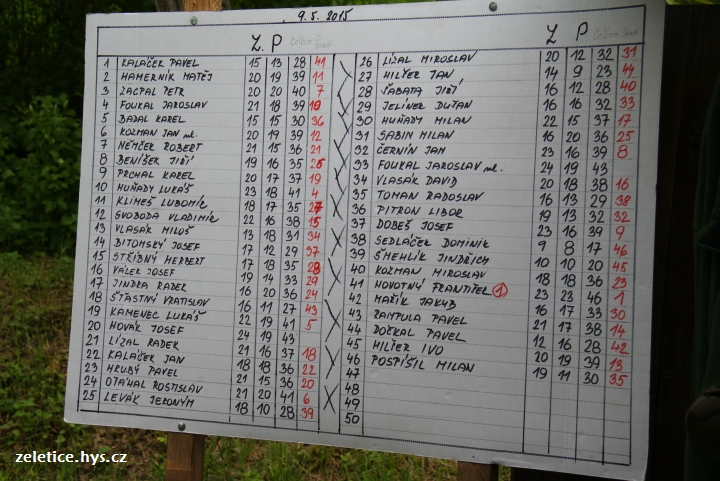 9.5. 2015
Z. P Celkem Poř.
1 KALÁČEK PAVEL 15 13 28 41
2 HAMERNÍK MATĚJ 20 19 39 11
3 ZACPAL PETR 20 20 40 7
4 FOUKAL JAROSLAV 21 18 39 10
5 BADAL KAREL 15 15 30 36
6 KOZMAN JAN ml. 20 19 39 12
7 NĚMČEK ROBERT 21 15 36 21
8 BENÍŠEK JIŘÍ 19 16 35 26
9 PRCHAL KAREL 20 17 37 19
10 HUŇADY LUKÁŠ 23 18 41 4
11 KLIMEŠ LUBOMÍR 18 17 35 27
12 SVOBODA VLADIMÍR 22 16 38 15
13 VLASÁK MILOŠ 13 18 31 34
14 BITOMSKÝ JOSEF 17 12 29 37
15 STŘÍBNÝ HERBERT 17 18 35 28
16 VÁLEK JOSEF 19 14 33 29
17 JINDRA RADEK 16 20 36 24
18 ŠŤASTNÝ VRATISLAV 16 11 27 43
19 KAMENEC LUKÁŠ 22 19 41 5
20 NOVÁK JOSEF 24 19 43
21 LÍZAL RADEK 21 16 37 18
22 KALÁČEK JAN 18 18 36 22
23 HRUBÝ PAVEL 21 15 36 20
24 OTÁHAL ROSTISLAV 21 20 41 6
25 LEVÁK JERONÝM 18 10 28 39
Z P Celkem Poř.
26 LÍZAL MIROSLAV 20 12 32 31
27 HILŠER JAN 14 9 23 44
28 ŠABATA JIŘÍ 16 12 28 40
29 JELÍNEK DUŠAN 16 16 32 33
30 HUŇADY MILAN 22 15 37 17
31 SABIN MILAN 16 20 36 25
32 ČERNÍN JAN 23 16 39 8
33 FOUKAL JAROSLAV ml. 24 19 43
34 VLASÁK DAVID 20 18 38 16
35 TOMAN RADOSLAV 16 13 29 38
36 PITRON LIBOR 19 13 32 32
37 DOBEŠ JOSEF 23 16 39 9
38 SEDLÁČEK DOMINIK 9 8 17 46
39 ŠMEHLÍK JINDŘICH 10 10 20 45
40 KOZMAN MIROSLAV 18 18 36 23
41 NOVOTNÝ FRANTIŠEK 1 23 23 46 1
42 MAŘÍK JAKUB 16 17 33 30
43 RAMPULA PAVEL 21 17 38 14
44 DOČKAL PAVEL 12 16 28 42
45 HILŠER IVO 20 19 39 13
46 POSPÍŠIL MILAN 19 11 30 35
47
48
49
50
zeletice.hys.cz